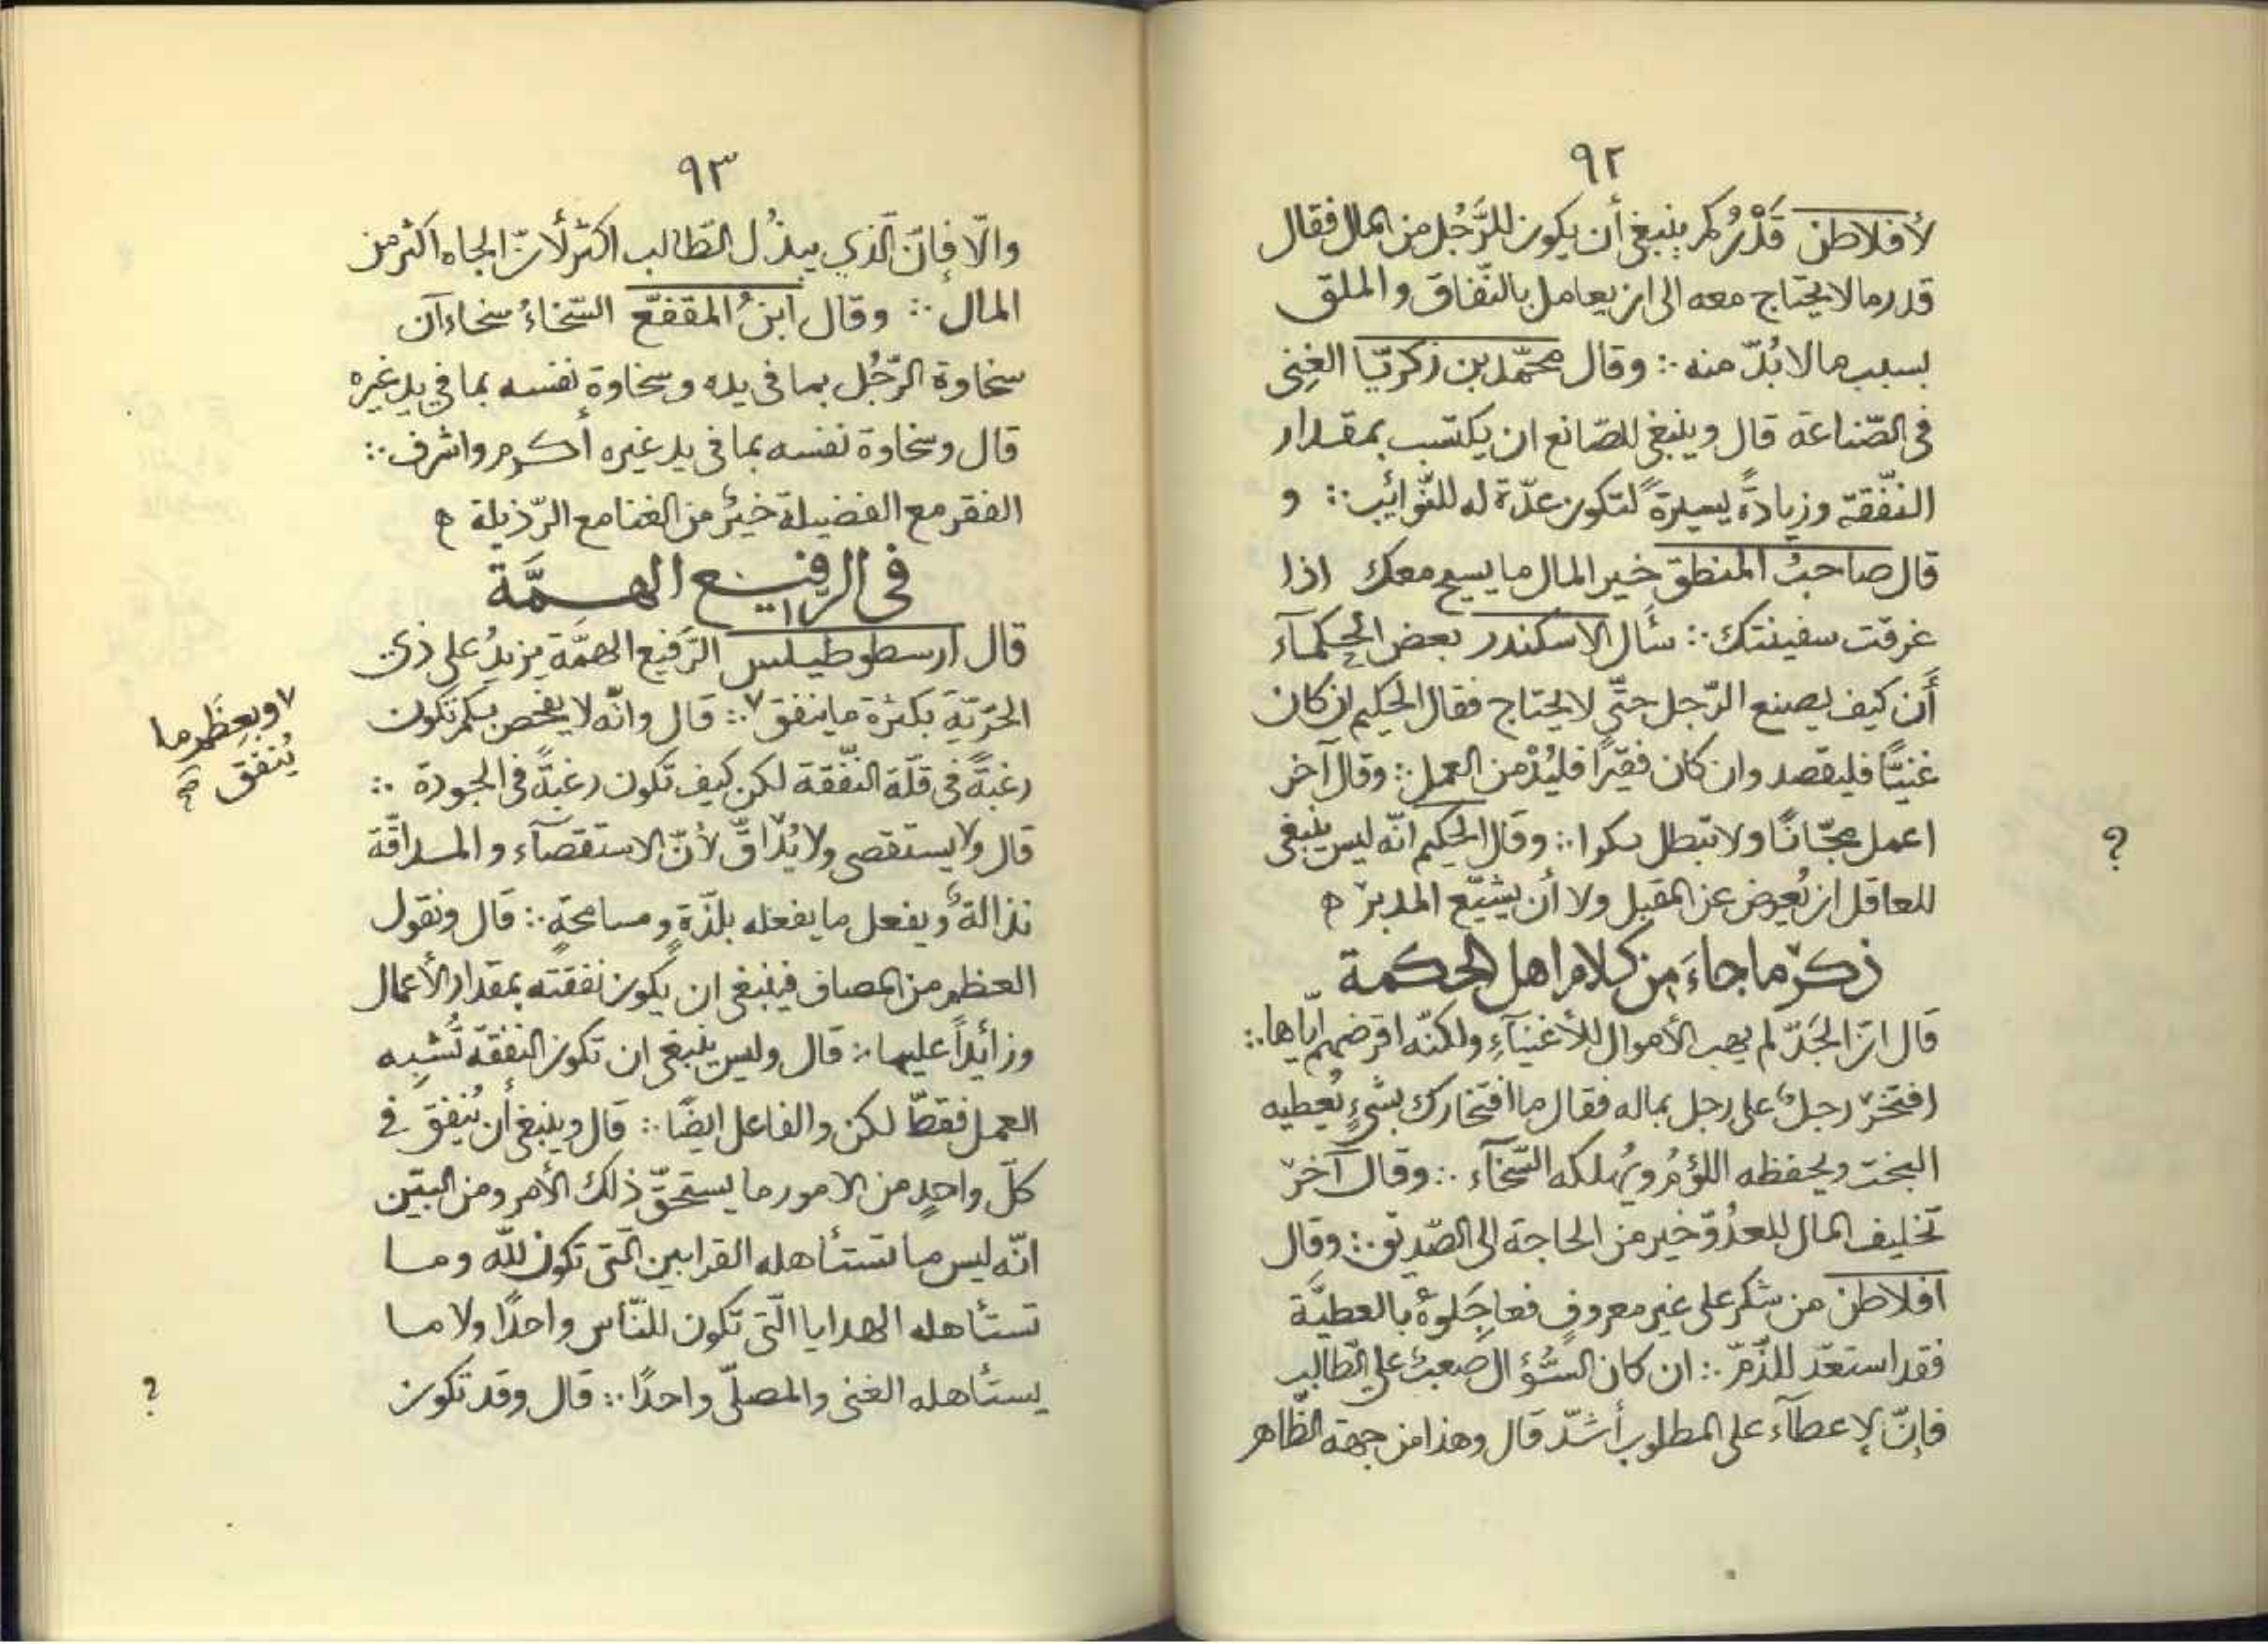 ٩٢
لأفلاطن قَدْرُ كم ينبغي أن يكون للرَّجُل من المال فقال
قدر ما لا يحتاج معه الى ان يعامل بالنّفاق والملق
بسبب ما لا بُدّ منه ∴ وقال محمّد بن زكريّا الغِنى
فى الصّناعة قال وينبغي للصّانع ان يكتسب بمقدار
النّفقة وزيادةً يسيرةً لتكون عدّة له للنّوائب ∴ و
قال صاحبُ المنطق خير المال ما يسبح معك اذا
غرقت سفينتك ∴ سأل الاسكندر بعض الحكمآء
أن كيف يصنع الرّجل حتّى لا يحتاج فقال الحكيم ان كان
غنيًّا فليقصد وان كان فقيرًا فليُدْمن العمل ∴ وقال آخر
اعمل مجّانًا ولا تبطل بكرا ∴ وقال الحكيم انّه ليس ينبغى
للعاقل ان يُعرض عن المقبل ولا أن يشيّع المدبرْ ه
ذكرْ ما جاءَ من كلام اهل الحكمة
قال انّ الجَدّ لم يهب الأموال للأغنيآءِ ولكنّه اقرضهم ايّاها ∴
افتخرْ رجلٌ على رجل بماله فقال ما افتخارك بشىءٍ يُعطيه
البخت ويحفظه اللؤمُ ويُهلكه السّخآء ∴ وقال آخرْ
تخليف المال للعدُوّ خير من الحاجة الى الصّديق ∴ وقال
افلاطن من شكر على غير معروفٍ فعاجَلوهُ بالعطيَّة
فقد استعدّ للذّمّ ∴ ان كان السُّؤال صعبٌ على الطّالب
فإنّ الإعطآء على المطلوب أشدّ قال وهذا من جهة الظّاهر
?
٩٣
والّا فإنّ الّذي يبذُل الطّالب اكثر لأنّ الجاه اكثر من
المال ∴ وقال ابنُ المقفّع السّخاءُ سخاءآن
سخاوة الرّجُل بما فى يده وسخاوة نفسه بما في يد غيره
قال وسخاوة نفسه بما فى يد غيره أكرم واشرف ∴
الفقر مع الفضيلة خيرٌ من الغنا مع الرّذيلة ه
فى الرفيع الهمَّة
قال ارسطوطيلس الرّفيع الهمّة يزيدُ على ذى
الحرّيّة بكثرة ما ينفق ٧ ∴ قال وانّه لا يفحص بكم تكون
رغبةً فى قلّة النّفقة لكن كيف تكون رغبةً فى الجودة ∴
قال ولا يستقصى ولا يُدْاقّ لأنّ الاستقصآء والمداقّة
نذالةٌ ويفعل ما يفعله بلذّةٍ ومسامحةٍ ∴ قال ونقول
العظم من المصاف فينبغى ان يكون نفقته بمقدار الأعمال
وزائداً عليها ∴ قال وليس ينبغى ان تكون النفقة تُشبِه
العمل فقطّ لكن والفاعل ايضًا ∴ قال وينبغى أن يُنفِقَ في
كلّ واحدٍ من الامور ما يستحقّ ذلك الأمر ومن البيّن
انّه ليس ما تستأهله القرابين الّتى تكون للّه وما
تستأهله الهدايا الّتى تكون للنّاس واحدًا ولا ما
يستأهله الغنى والمصلّى واحدًا ∴ قال وقد تكون
٧ وبعِظَم ما
يُنفق
?